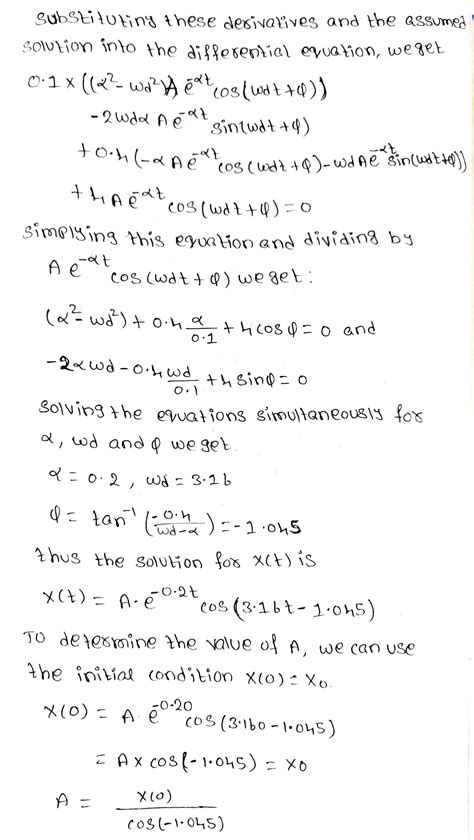 substituting these derivatives and the assumed
solution into the differential equation, we get
0.1 × ((α² - wd²) A e^-αt cos(wdt + φ))
-2wdα A e^-αt sin(wdt + φ)
+ 0.4 (-α A e^-αt cos(wdt + φ) - wd A e^-αt sin(wdt + φ))
+ 4 A e^-αt cos(wdt + φ) = 0
simplying this equation and dividing by
A e^-αt cos(wdt + φ) we get:
(α² - wd²) + 0.4 α/0.1 + 4 cos φ = 0 and
-2αwd - 0.4 wd/0.1 + 4 sin φ = 0
solving the equations simultaneously for
α, wd and φ we get.
α = 0.2, wd = 3.16
φ = tan⁻¹ (-0.4/wd-α) = -1.045
thus the solution for x(t) is
x(t) = A · e^-0.2t cos(3.16t - 1.045)
To determine the value of A, we can use
the initial condition x(0) = x0.
x(0) = A e^-0.20 cos(3.160 - 1.045)
= A × cos(-1.045) = x0
A = x(0)/cos(-1.045)